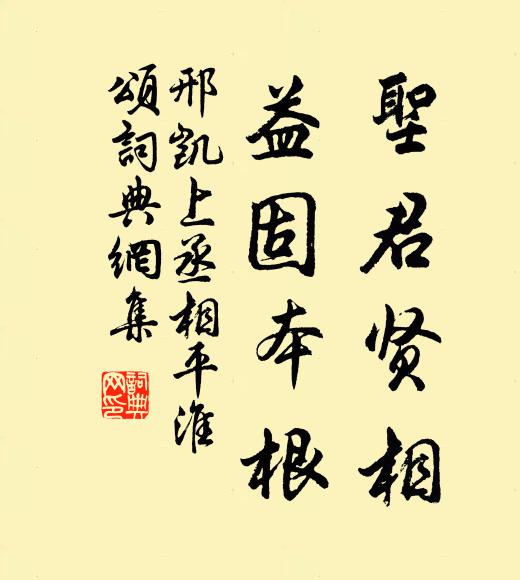 聖君贤相
益固本根
邢凱上丞相平淮
頌詞典網集
詞典网印